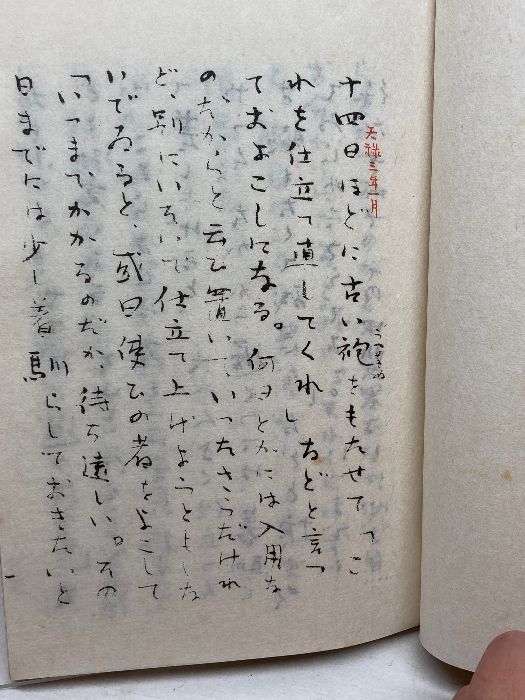 天禄三年一月
十四日ほどに古い袍をもたせて「こ
うへのきぬ
れを仕立て直してくれ」などと言つ
ておよこしになる。何日とかには入用な
のだからと云ひ置いて、いつたさうだけれ
ど、別にいそいで仕立て上げようともしな
いでゐると、或日使ひの者をよこして
「いつまでかかるのだか、待ち遠しい。その
日までには少し着馴らしておきたいと